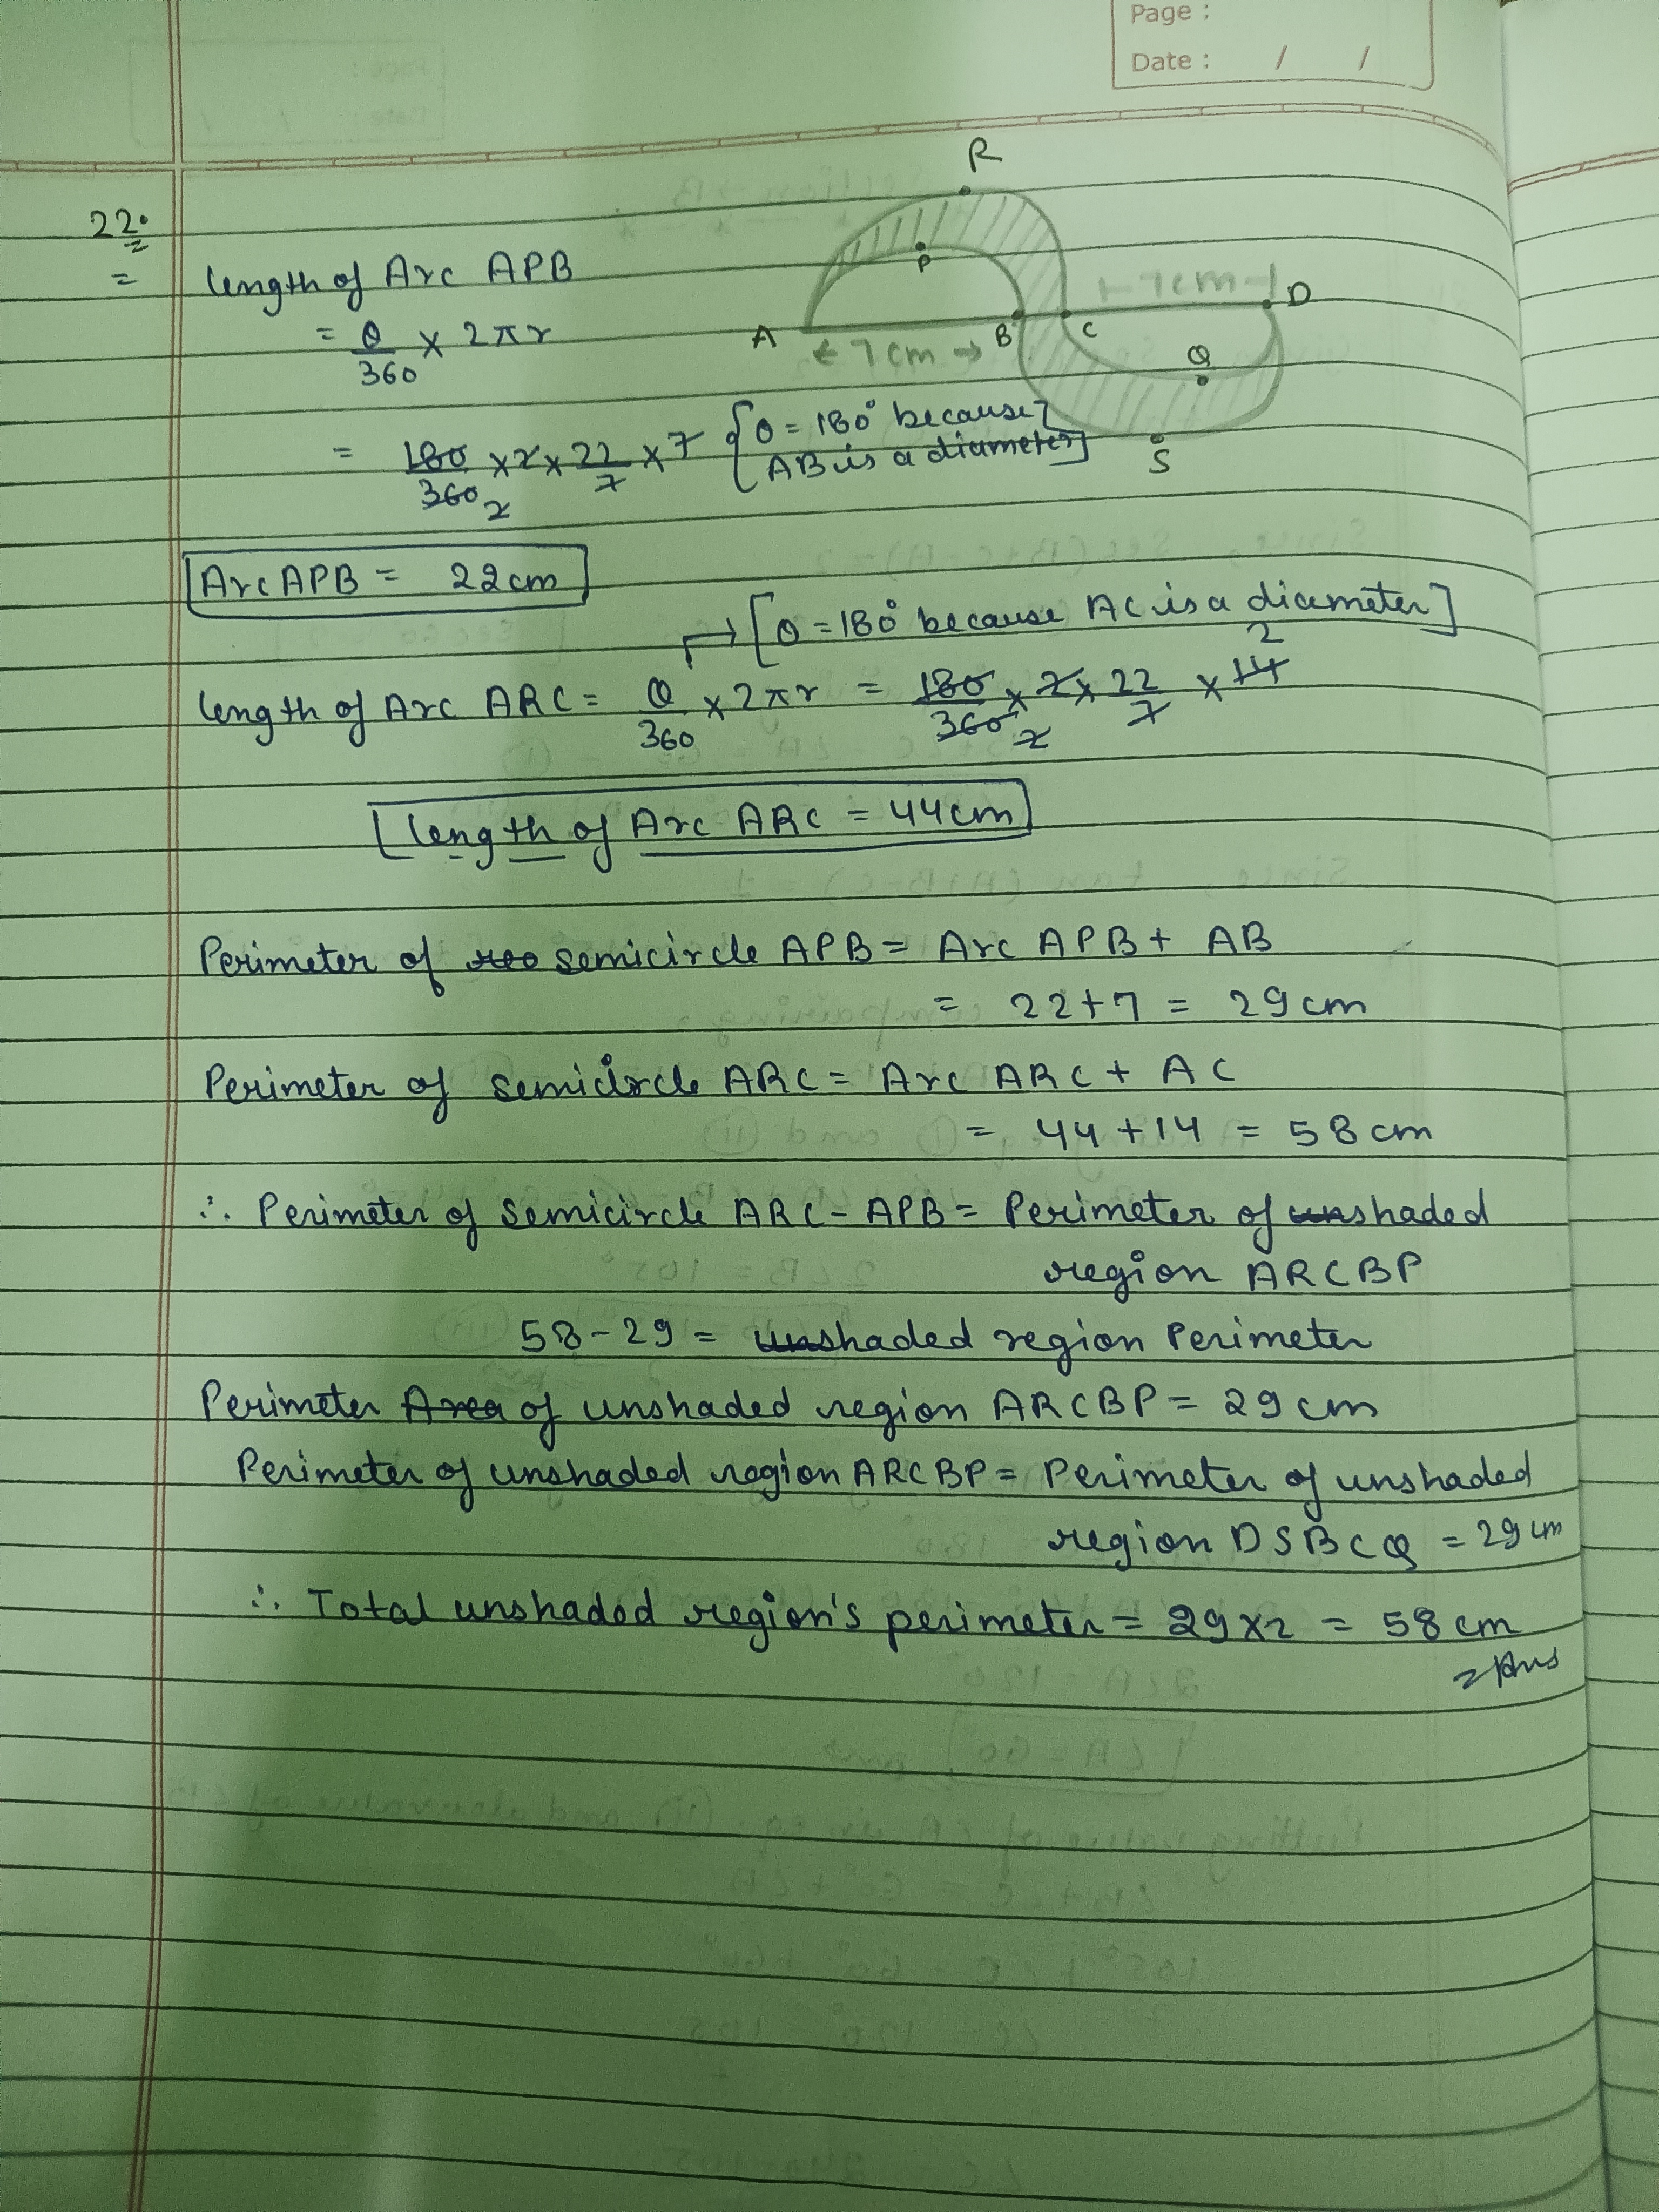 Page :
Date : / /
22.
R
P
A
B
C
D
Q
S
7cm
← 7cm →
= length of Arc APB
= θ/360 × 2πr
= 180/360 2 × 2 × 22/7 × 7 {θ = 180° because
AB is a diameter]
Arc APB = 22cm
→ [θ = 180° because AC is a diameter]
length of Arc ARC = θ/360 × 2πr = 180/360 2 × 2 × 22/7 × 14 2
length of Arc ARC = 44cm
Perimeter of semicircle APB = Arc APB + AB
= 22+7 = 29cm
Perimeter of semicircle ARC = Arc ARC + AC
= 44 + 14 = 58cm
∴ Perimeter of semicircle ARC - APB = Perimeter of unshaded
region ARCBP
58 - 29 = unshaded region Perimeter
Perimeter Area of unshaded region ARCBP = 29cm
Perimeter of unshaded region ARCBP = Perimeter of unshaded
region DSBCQ = 29cm
∴ Total unshaded region's perimeter = 29×2 = 58cm
Ans